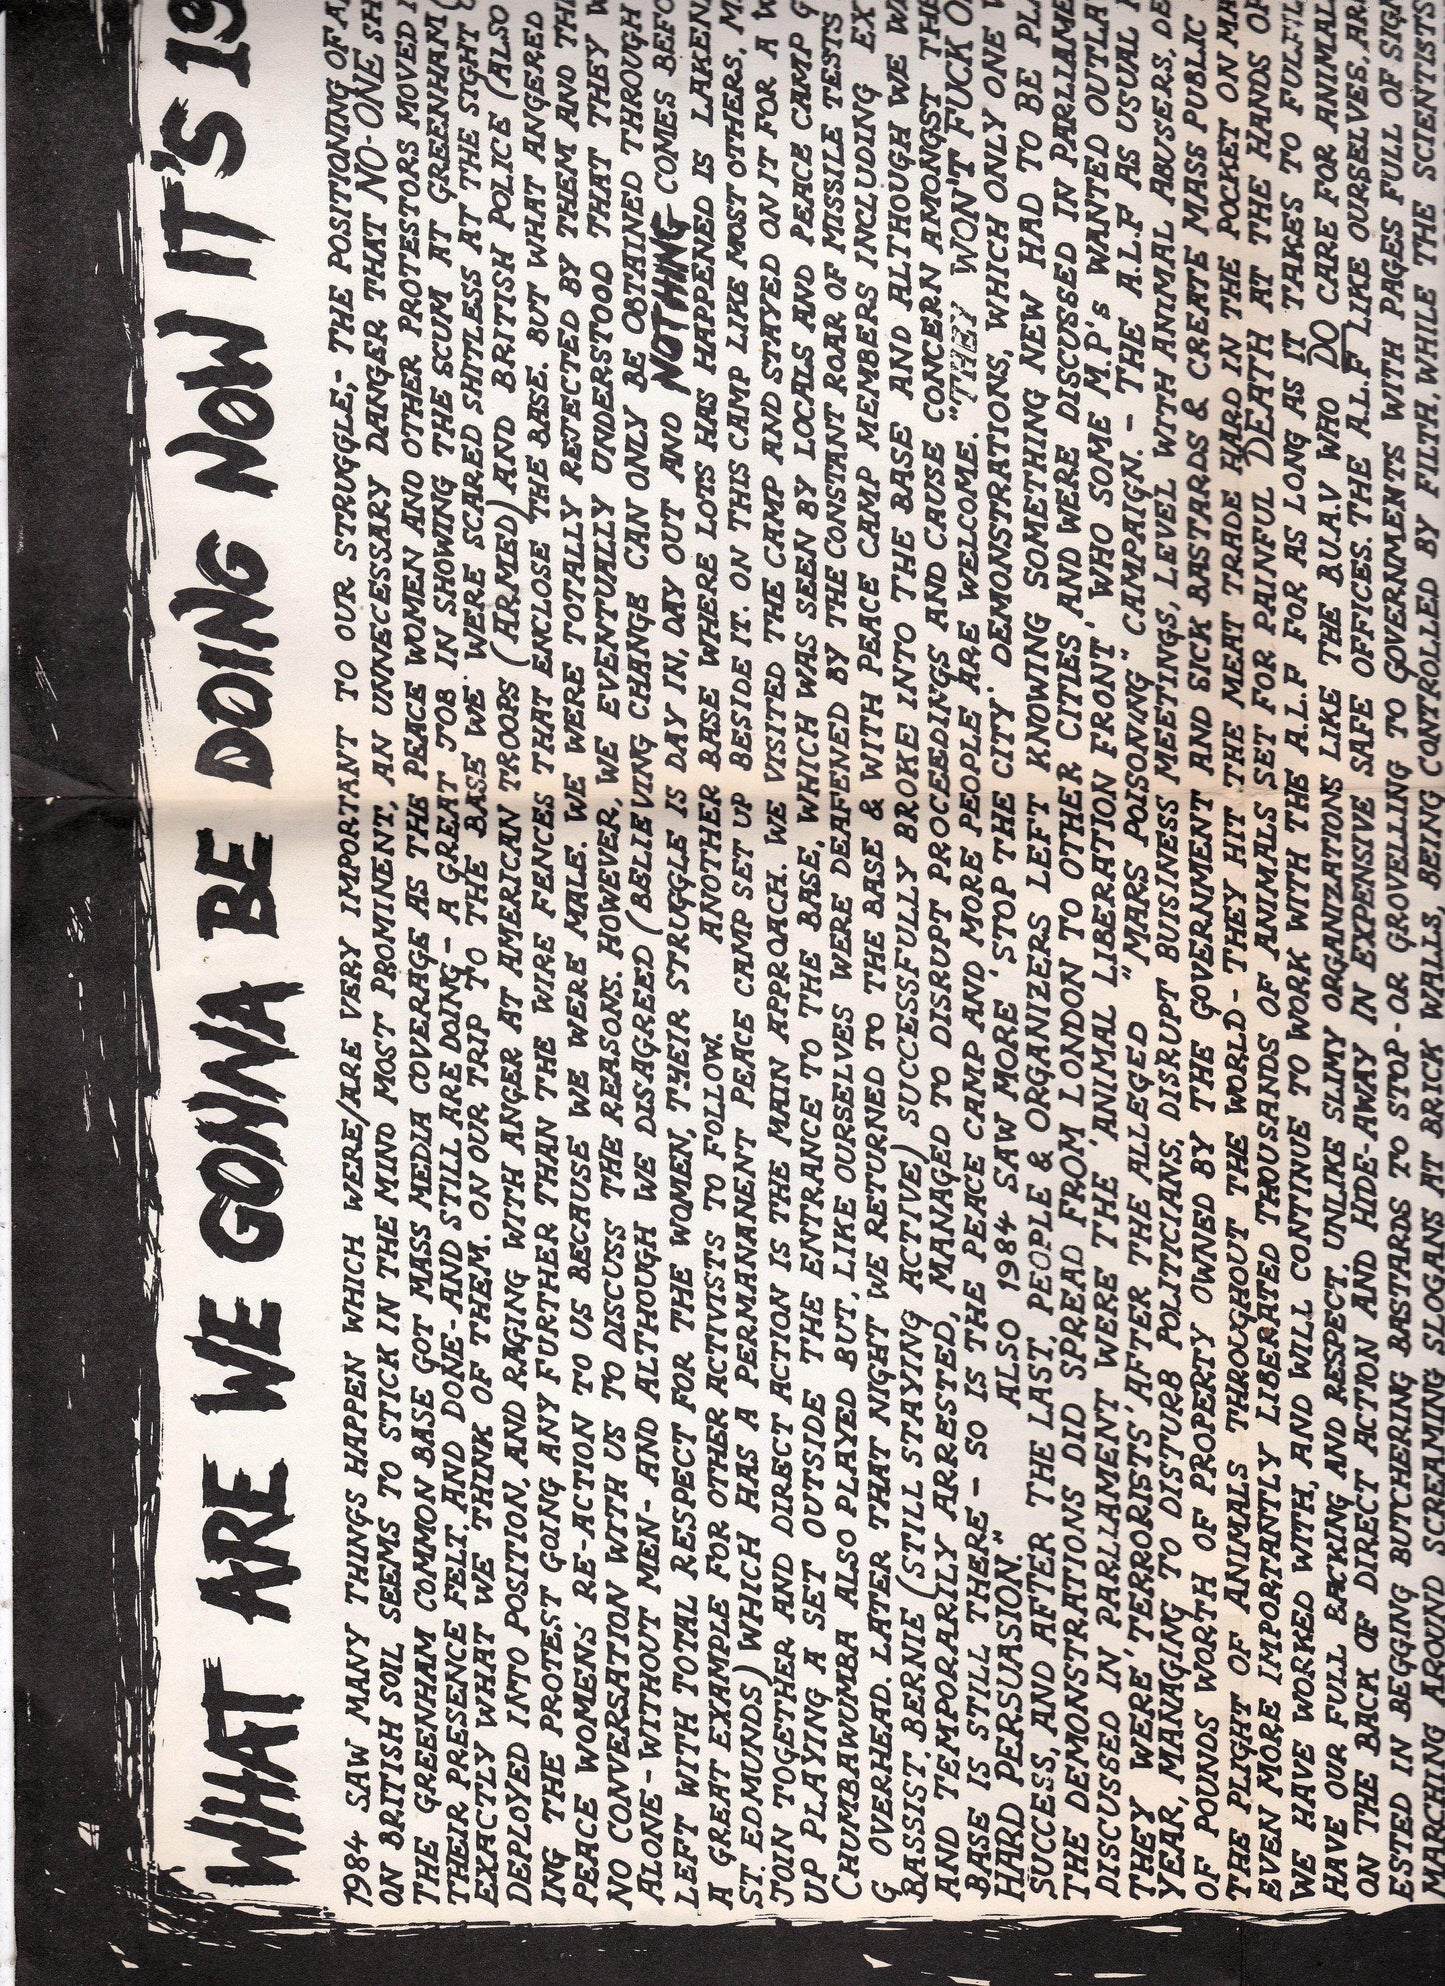 WHAT ARE WE GONNA BE DOING NOW IT'S 19
1984 SAW MANY THINGS HAPPEN WHICH WERE/ARE VERY IMPORTANT TO OUR STRUGGLE,- THE POSITIONING OF A
ON BRITISH SOIL SEEMS TO STICK IN THE MIND MOST PROMINENT, AN UNNECESSARY DANGER THAT NO-ONE SH
THE GREENHAM COMMON BASE GOT MASS MEDIA COVERAGE AS THE PEACE WOMEN AND OTHER PROTESTORS MOVED
THEIR PRESENCE FELT. AND DONE-AND STILL ARE DOING- A GREAT JOB IN SHOWING THE SCUM AT GREENHAM
EXACTLY WHAT WE THINK OF THEM. ON OUR TRIP TO THE BASE WE WERE SCARED SHITLESS AT THE SIGHT
DEPLOYED INTO POSITION, AND RAGING WITH ANGER AT AMERICAN TROOPS (ARMED) AND BRITISH POLICE (ALSO
ING THE PROTEST GOING ANY FURTHER THAN THE WIRE FENCES THAT ENCLOSE THE BASE. BUT WHAT ANGERED
PEACE WOMENS RE-ACTION TO US BECAUSE WE WERE MALE. WE WERE TOTALLY REJECTED BY THEM AND THE
NO CONVERSATION WITH US TO DISCUSS THE REASONS. HOWEVER, WE EVENTUALLY UNDERSTOOD THAT THEY W
ALONE-WITHOUT MEN- AND ALTHOUGH WE DISAGREED (BELIEVING CHANGE CAN ONLY BE OBTAINED THROUGH
LEFT WITH TOTAL RESPECT FOR THE WOMEN, THEIR STRUGGLE IS DAY IN, DAY OUT AND NOTHING COMES BEFO
A GREAT EXAMPLE FOR OTHER ACTIVISTS TO FOLLOW. ANOTHER BASE WHERE LOTS HAS HAPPENED IS LAKEN
ST. EDMUNDS) WHICH HAS A PERMANANENT PEACE CAMP SET UP BESIDE IT. ON THIS CAMP LIKE MOST OTHERS, M
JOIN TOGETHER AND DIRECT ACTION IS THE MAIN APPROACH. WE VISITED THE CAMP AND STAYED ON IT FOR A W
UP PLAYING A SET OUTSIDE THE ENTRANCE TO THE BASE, WHICH WAS SEEN BY LOCALS AND PEACE CAMP G
CHUMBAWUMBA ALSO PLAYED BUT, LIKE OURSELVES WERE DEAFENED BY THE CONSTANT ROAR OF MISSILE TESTS
G OVERHEAD. LATER THAT NIGHT WE RETURNED TO THE BASE & WITH PEACE CAMP MEMBERS INCLUDING EX
BASSIST. BERNIE (STILL STAYING ACTIVE) SUCCESSFULLY BROKE INTO THE BASE AND ALTHOUGH WE WE
AND TEMPORARILY ARRESTED, MANAGED TO DISRUPT PROCEEDINGS AND CAUSE CONCERN AMONGST THE
BASE IS STILL THERE - SO IS THE PEACE CAMP AND MORE PEOPLE ARE WELCOME. "THEY WON'T FUCK O
HARD PERSUASION." ALSO 1984 SAW MORE 'STOP THE CITY' DEMONSTRATIONS, WHICH ONLY ONE W
SUCCESS, AND AFTER THE LAST, PEOPLE & ORGANIZERS LEFT KNOWING SOMETHING NEW HAD TO BE PLA
THE DEMONSTRATIONS DID SPREAD FROM LONDON TO OTHER CITIES AND WERE DISCUSSED IN PARLIAME
DISCUSSED IN PARLIAMENT WERE THE 'ANIMAL LIBERATION FRONT', WHO SOME M.P's WANTED OUTLA
THEY WERE 'TERRORISTS' AFTER THE ALLEGED "MARS POISONING" CAMPAIGN. - THE A.L.F AS USUAL
YEAR, MANAGING TO DISTURB POLITICIANS, DISRUPT BUISINESS MEETINGS, LEVEL WITH ANIMAL ABUSERS, DE
OF POUNDS WORTH OF PROPERTY OWNED BY THE GOVERNMENT AND SICK BASTARDS & CREATE MASS PUBLIC
THE PLIGHT OF ANIMALS THROUGHOUT THE WORLD-THEY HIT THE MEAT TRADE HARD IN THE POCKET ON MA
EVEN MORE IMPORTANTLY LIBERATED THOUSANDS OF ANIMALS SET FOR PAINFUL DEATH AT THE HANDS OF
WE HAVE WORKED WITH, AND WILL CONTINUE TO WORK WITH THE A.L.F FOR AS LONG AS IT TAKES TO FULFIL
HAVE OUR FULL BACKING AND RESPECT. UNLIKE SLIMY ORGANIZATIONS LIKE THE B.U.A.V WHO DO CARE FOR ANIMAL
ON THE BACK OF DIRECT ACTION AND HIDE-AWAY IN EXPENSIVE SAFE OFFICES. THE A.L.F LIKE OURSELVES, AR
ESTED IN BEGGING BUTCHERING BASTARDS TO STOP - OR GROVELLING TO GOVERNMENTS WITH PAGES FULL OF SIGN
MARCHING AROUND SCREAMING SLOGANS AT BRICK WALLS, BEING CONTROLLED BY FILTH, WHILE THE SCIENTISTS